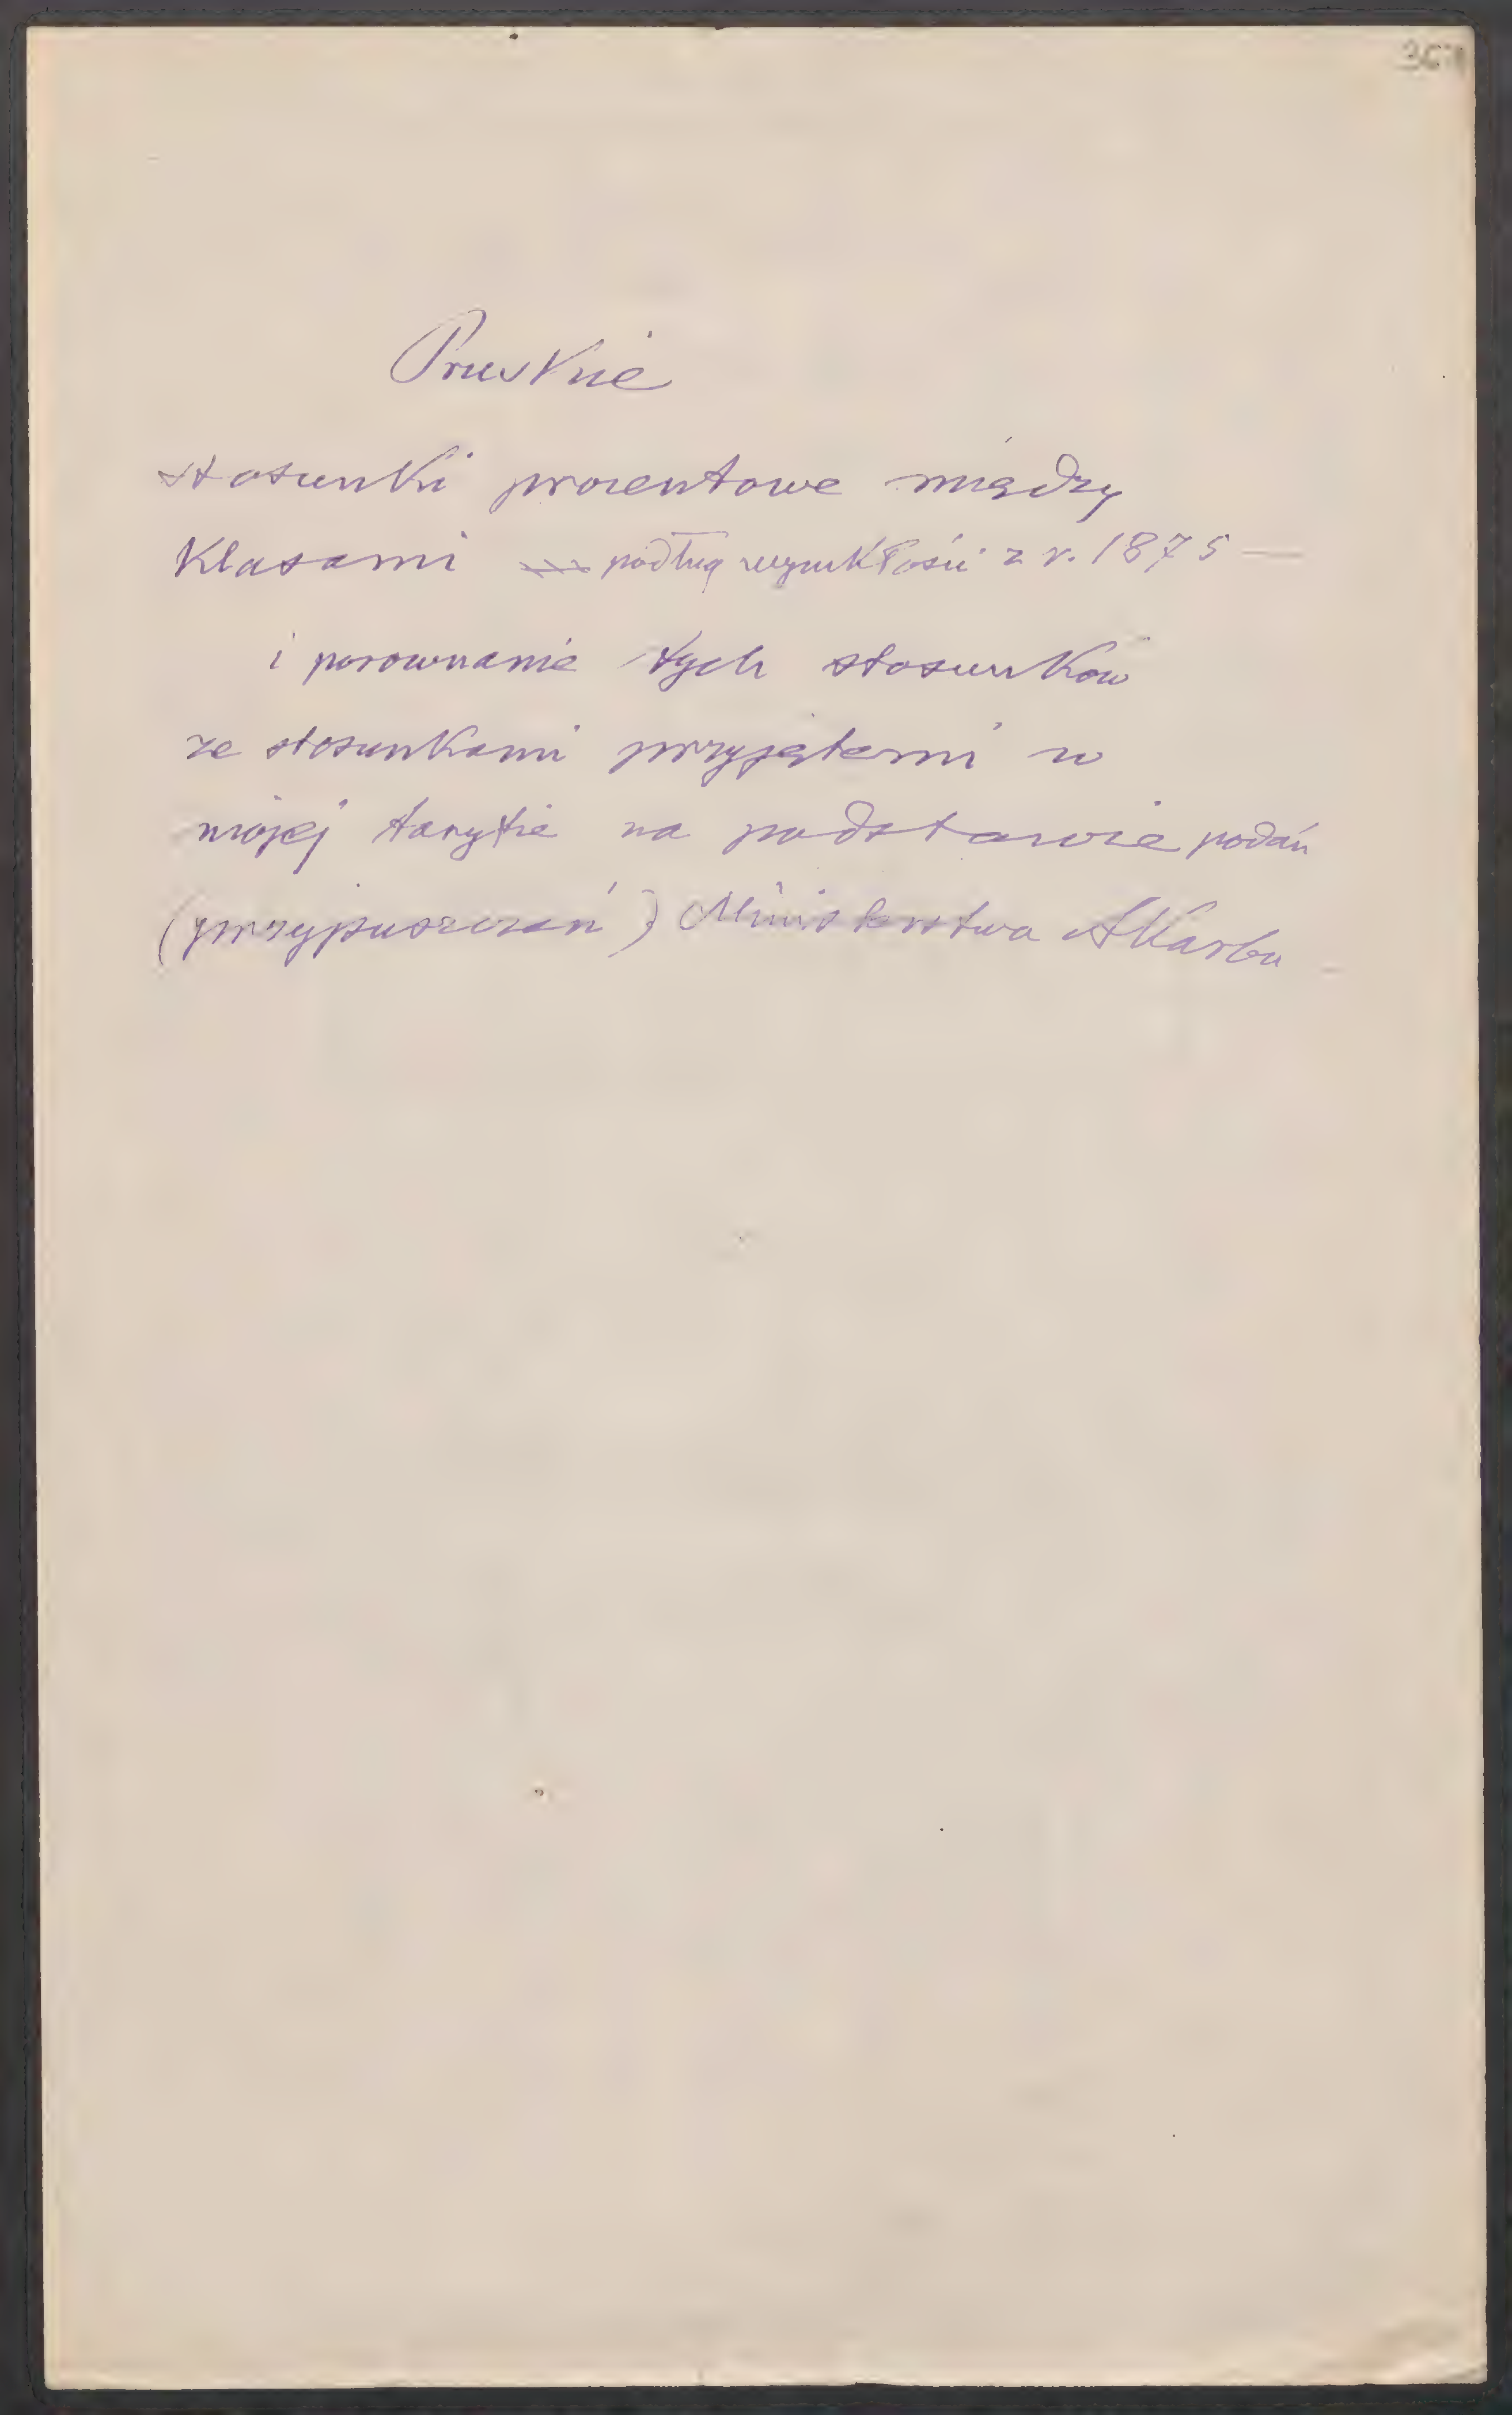 Pruskie
stosunki procentowe między
Klasami podług z r. 1875 —
i porownanie tych stosunków
ze stosunkami przyjętemi w
mojej taryfie na podstawie podań
(przypuszczeń) Ministerstwa Skarbu